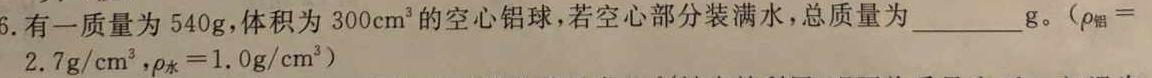 6.有一质量为 540g,体积为 300cm³的空心铝球,若空心部分装满水,总质量为________g。(ρ铝=
2.7g/cm³,ρ水=1.0g/cm³)